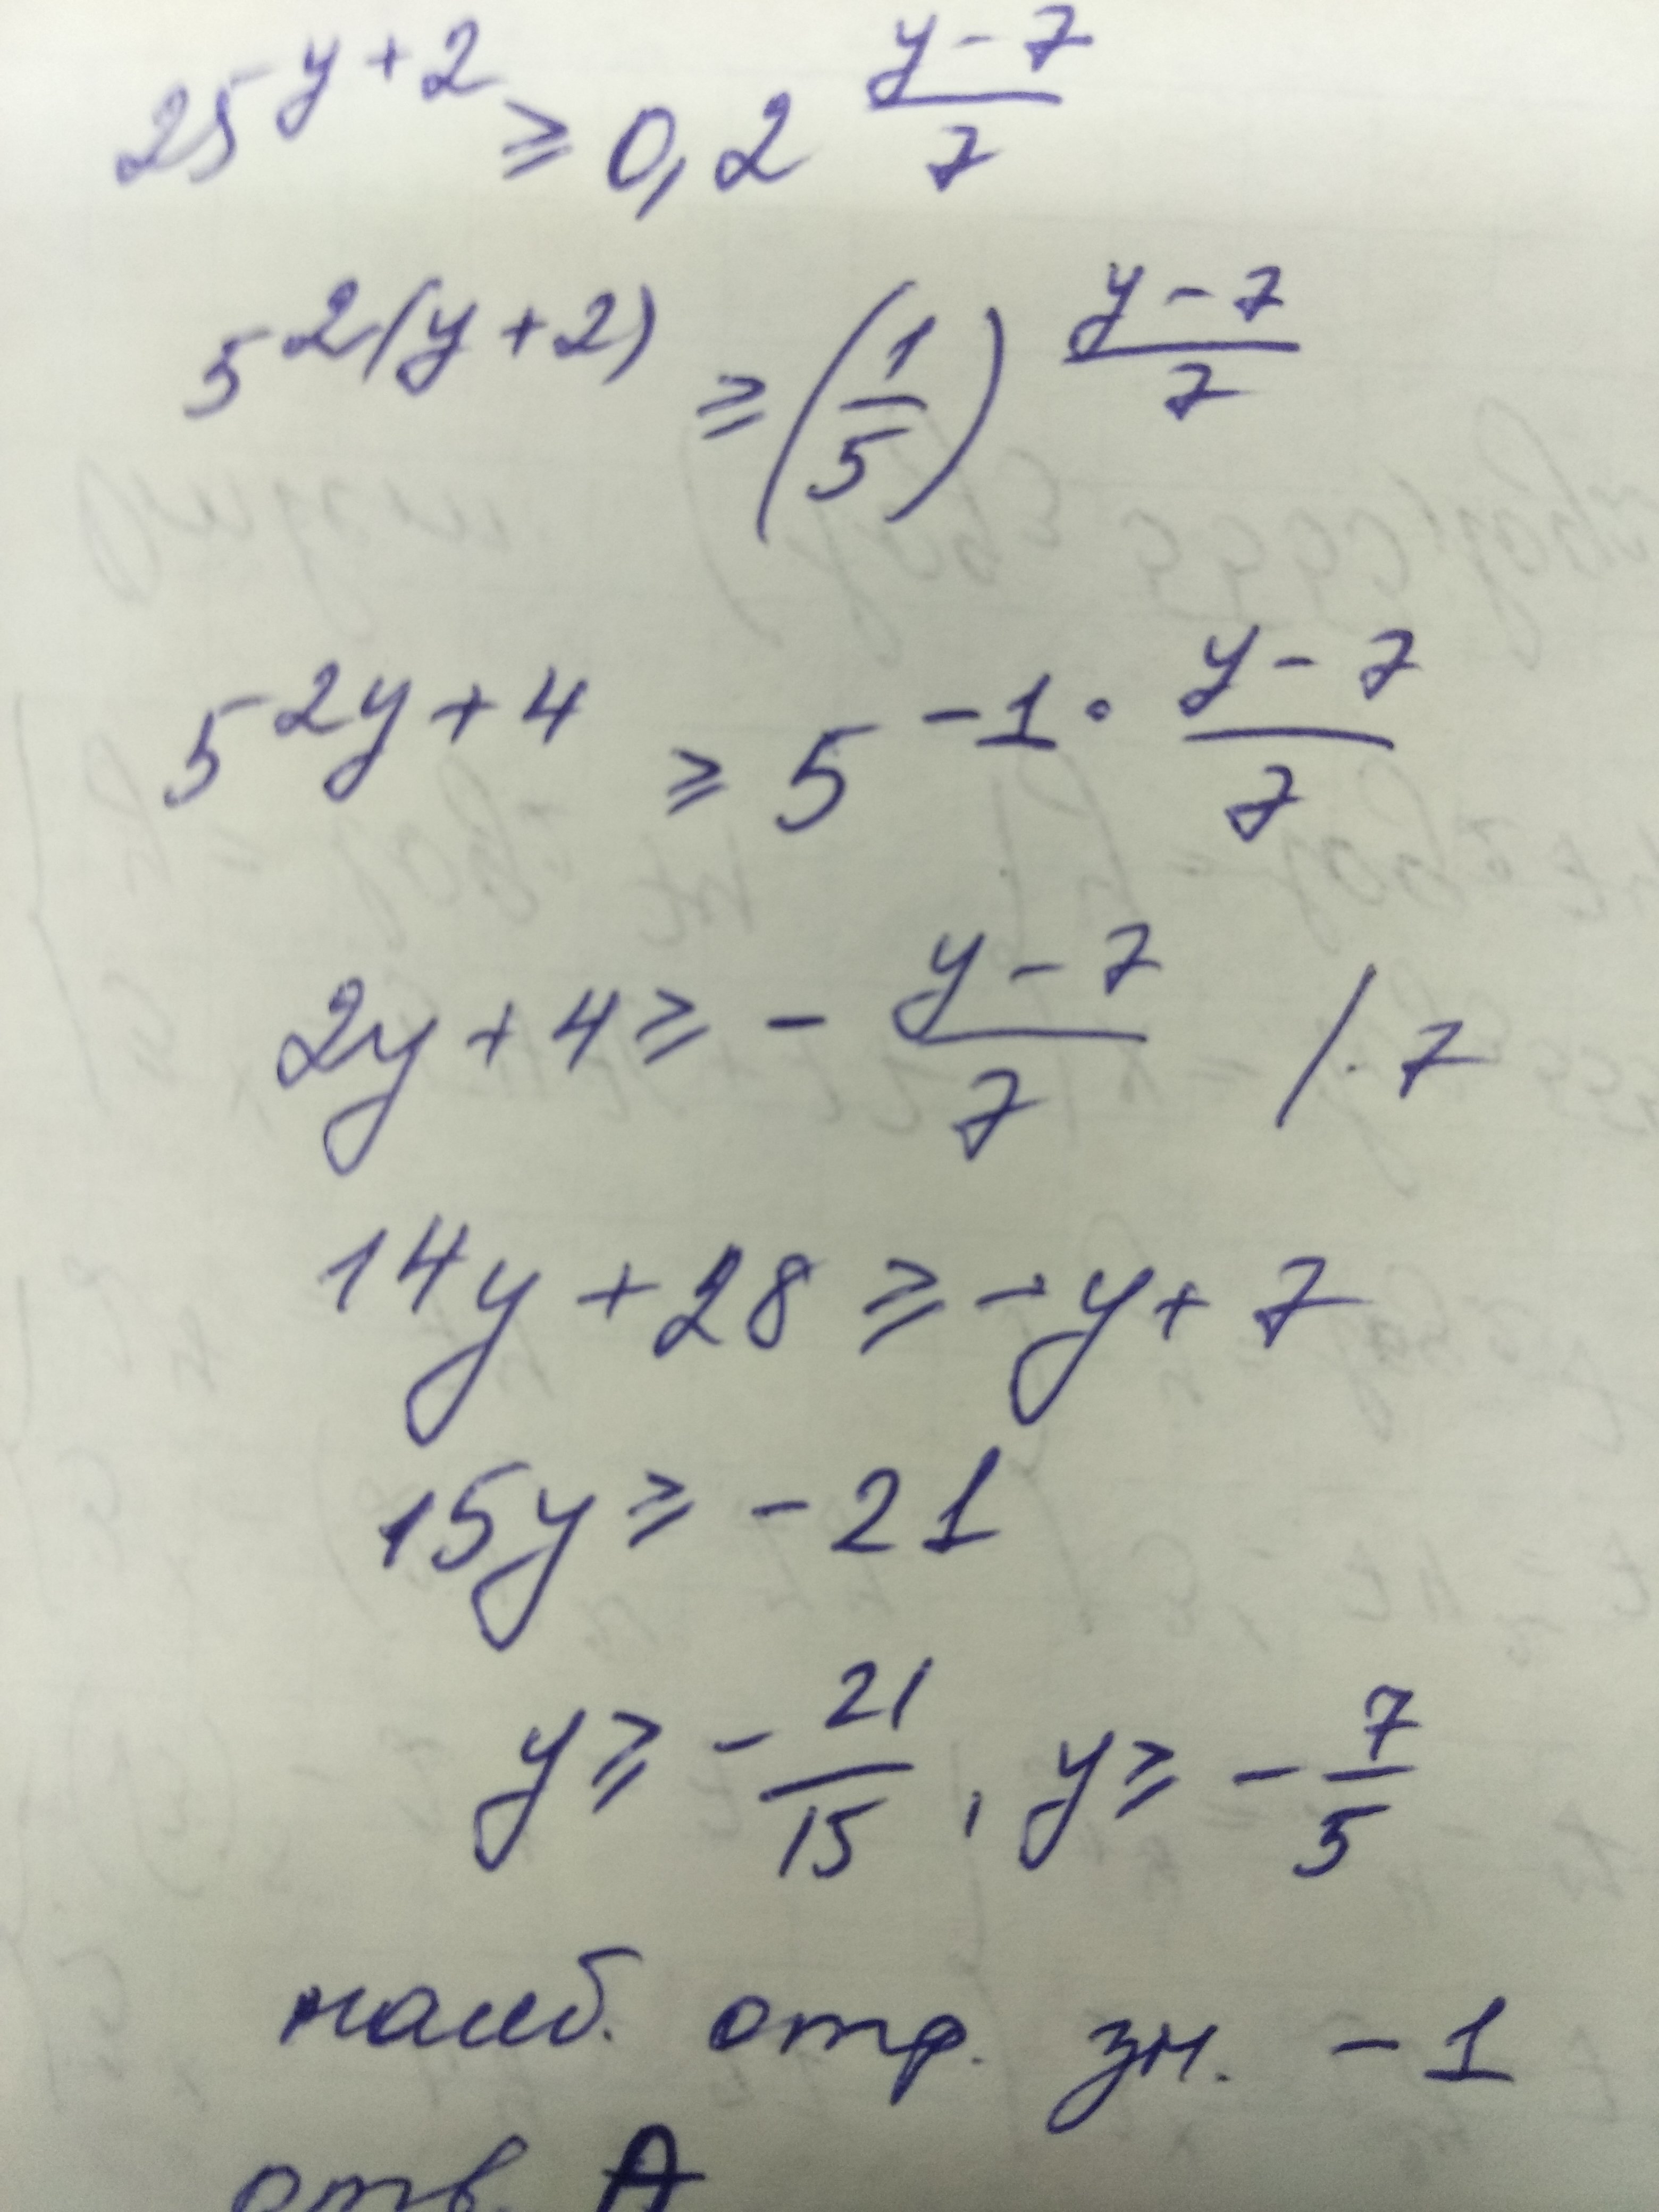 25^{y+2} ≥ 0,2^{\frac{y-7}{7}}
5^{2(y+2)} ≥ (\frac{1}{5})^{\frac{y-7}{7}}
5^{2y+4} ≥ 5^{-1·\frac{y-7}{7}}
2y+4 ≥ -\frac{y-7}{7} /·7
14y+28 ≥ -y+7
15y ≥ -21
y ≥ -\frac{21}{15}, y ≥ -\frac{7}{5}
наиб. отр. зн. -1
отв. А